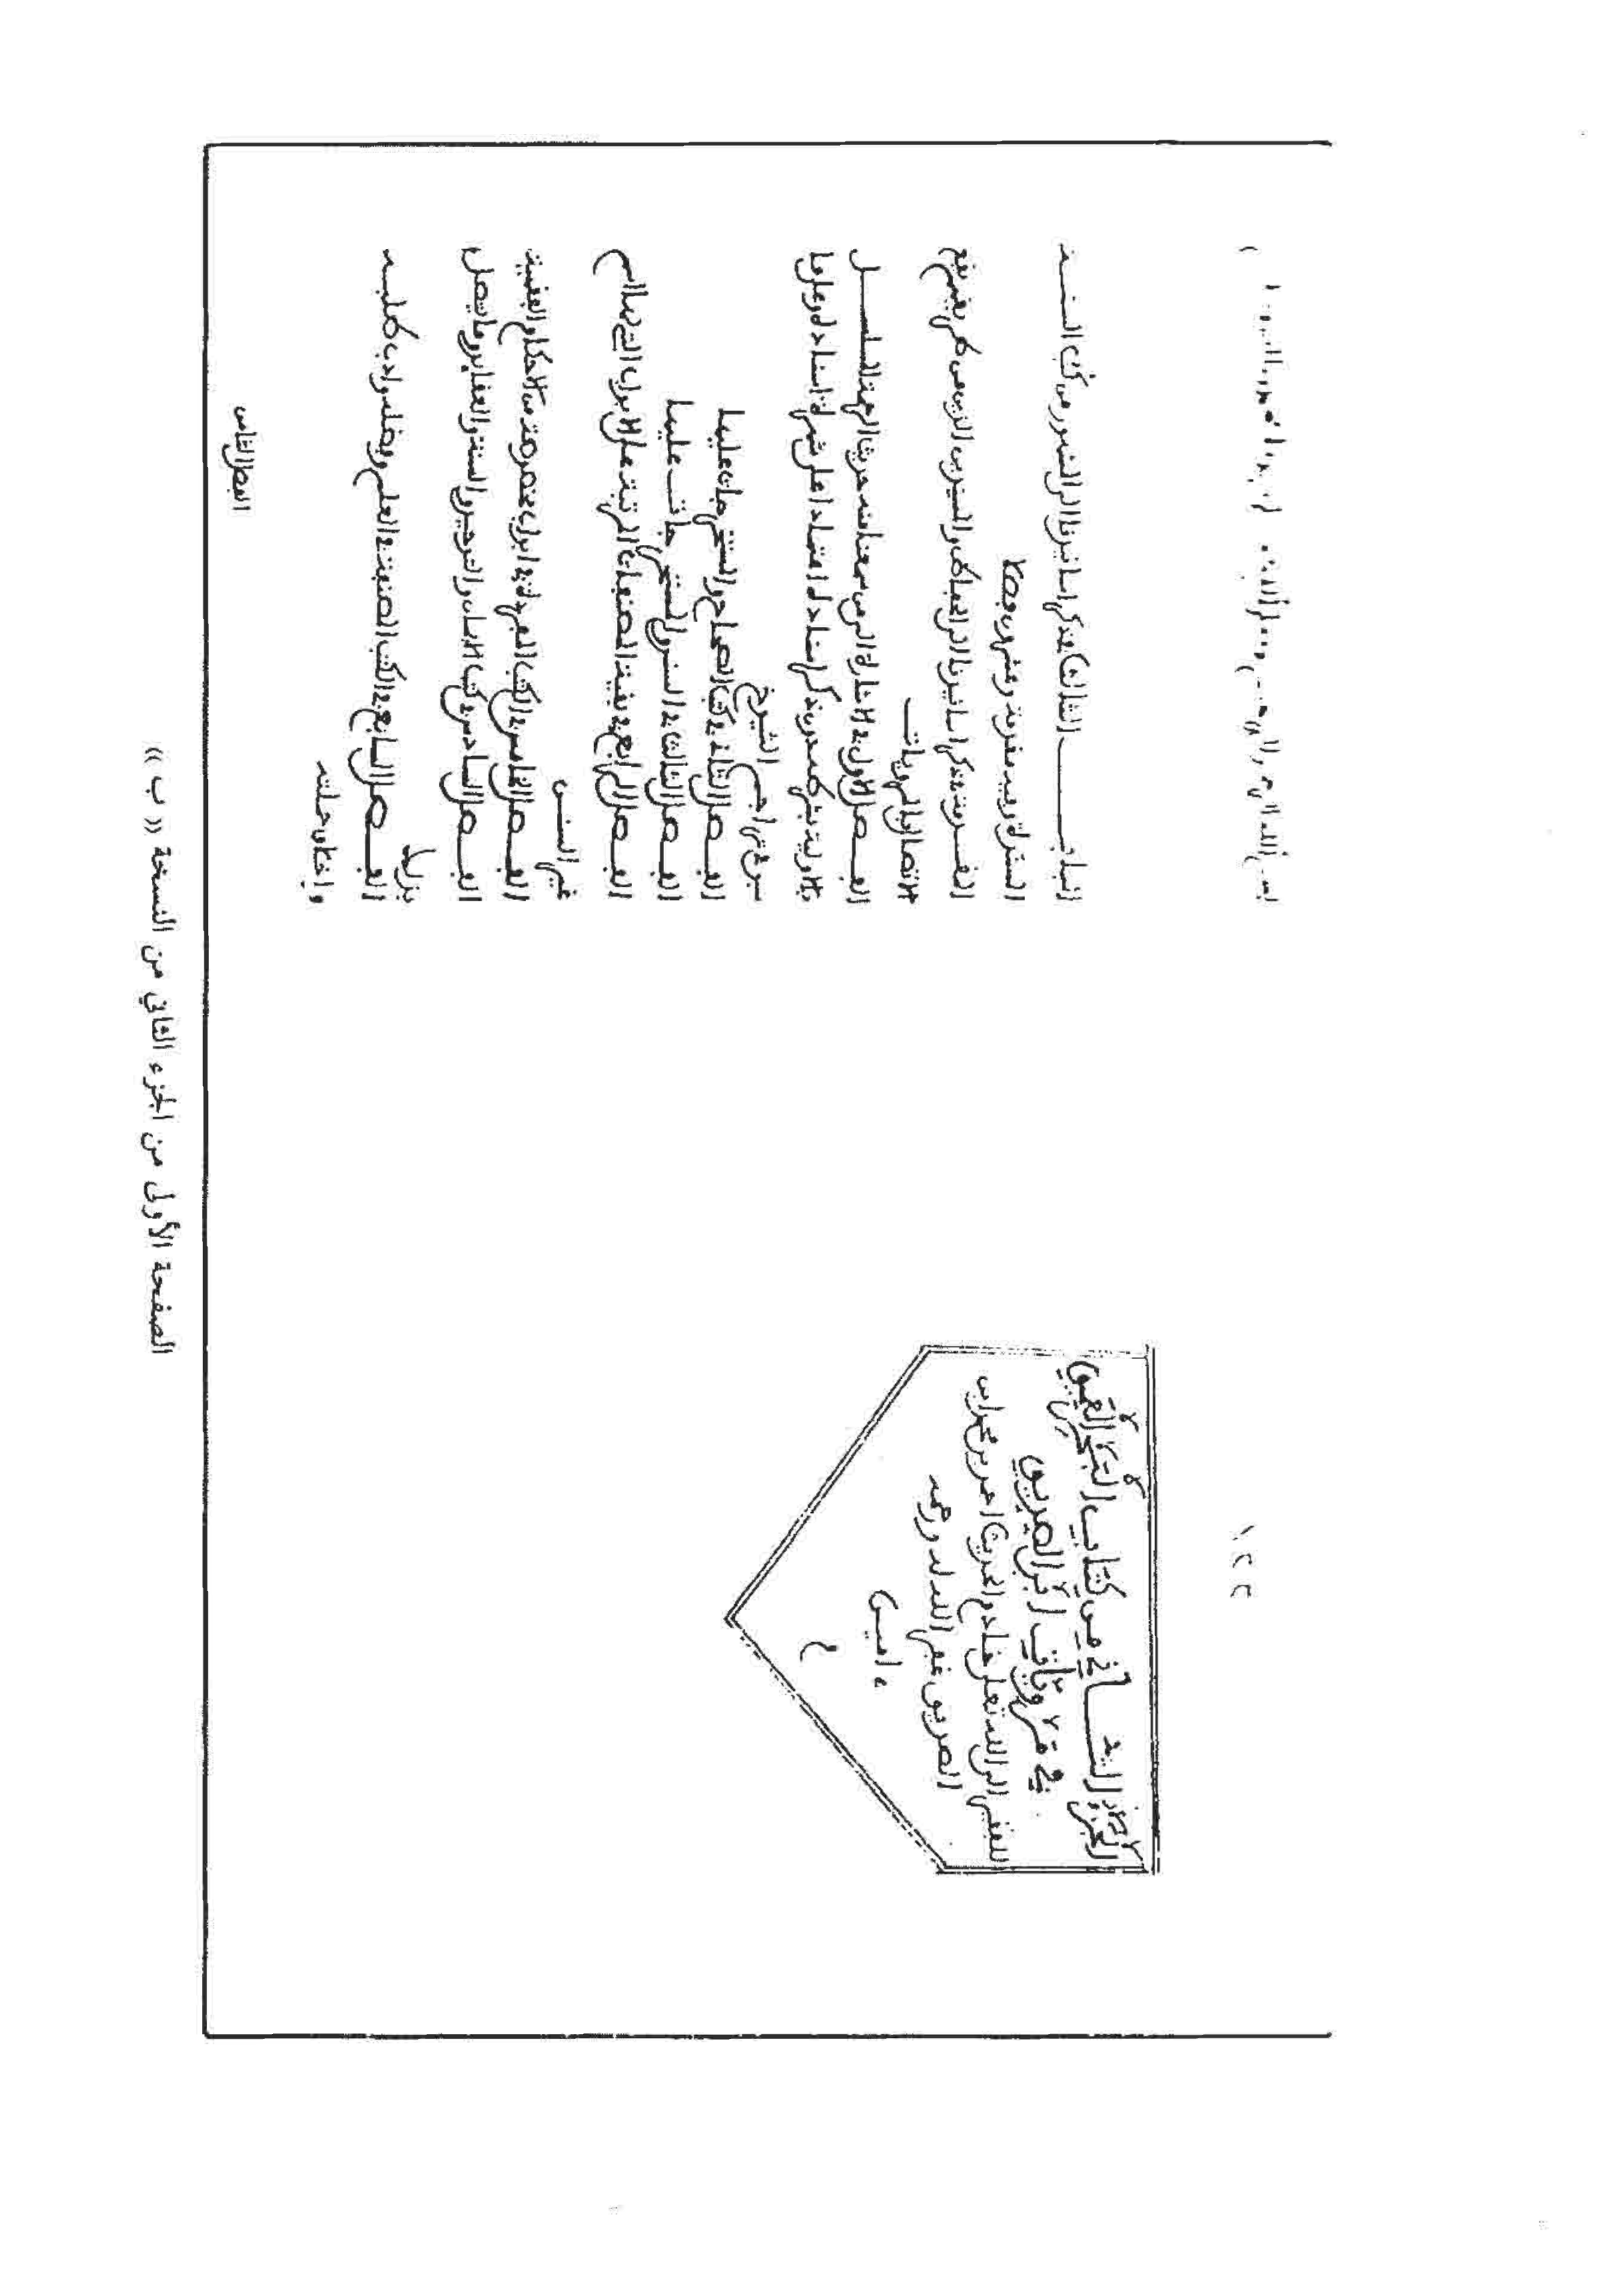 ١٢٢
الجزء الثاني من كتاب البحر العميق
في مرويات ابن الصديق
للفقير الى الله تعلى خادم الحديث احمد بن محمد ابن
الصديق غفر الله له ورحمه
ءامين
م
بسم الله الرحمن الرحيم
البـاب الثالث في ذكر اسانيدنا الى المشهور من كتب السنـة
المشرفة وبيه مقدمة وعشرون فصلا
المقدمة في ذكر اسانيدنا الى الحفاظ والمسندين الذين من طريقهم يقع
الاتصال بالمرويات
الفصل الاول في الاشارة الى من سمعنا منه حديث الرحمة المسلسل
بالاولية
من تراجم الشيوخ
الفصل الثاني في كتب الصحاح والمستخرجات عليها
الفصل الثالث في السنن والمستخرجات عليها
الفصل الرابع في بقية المصنفات المرتبة على الابواب التي لها اسم
غير السنن
الفصل الخامس في الكتب المفردة في ابواب مخصوصة من الاحكام الفقهية
الفصل السادس في كتب الايمان والتوحيد والسنة والعقايد وما يتصل
بذلك
الفصل السابع في الكتب المصنفة في العلم وفضله وادب طلبه
واخلاق حملته
الفصل الثامن
الصفحة الأولى من الجزء الثاني من النسخة « ب »